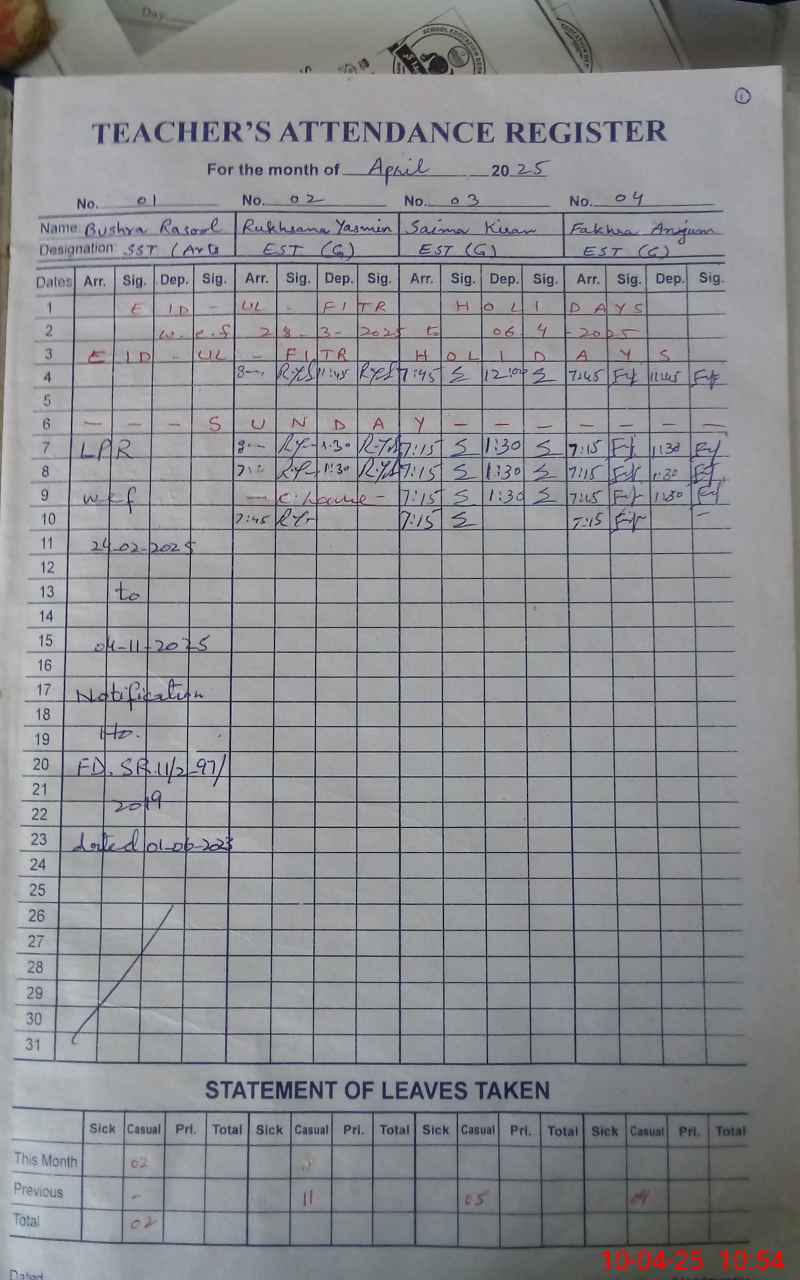 Day
SCHOOL EDUCATION
1
TEACHER'S ATTENDANCE REGISTER
For the month of April 2025
No. 01 No. 02 No. 03 No. 04
Name: Bushra Rasool Rukhsana Yasmin Saima Kiran Fakhra Anjum
Designation: SST (Arts EST (G) EST (G) EST (G)
Dates Arr. Sig. Dep. Sig. Arr. Sig. Dep. Sig. Arr. Sig. Dep. Sig. Arr. Sig. Dep. Sig.
1 EID - UL - FITR HOLI DAYS
2 w.e.f 28-3-2025 to 06 4 -2025
3 EID - UL - FITR HOLIDAYS
4 8-- 11:45 7:45 S 12:00 S 7:45 11:45
5
6 - - - SUNDAY - - - - - - -
7 LPR 8-- 1:30 7:15 S 1:30 S 7:15 1:30
8 1:30 7:15 S 1:30 S 7:15 1:30
9 wef - - 7:15 S 1:30 S 11:30
10 7:45 7:15 S 7:15 -
11 24-02-2025
12
13 to
14
15 04-11-2025
16
17 Notification
18
19 No.
20 FD. SR.11/2-97/
21
22 2019
23 dated 01-06-2023
24
25
26
27
28
29
30
31
STATEMENT OF LEAVES TAKEN
Sick Casual Pri. Total Sick Casual Pri. Total Sick Casual Pri. Total Sick Casual Pri. Total
This Month 02
Previous - 11 05 04
Total 02
Dated
10-04-25 10:54